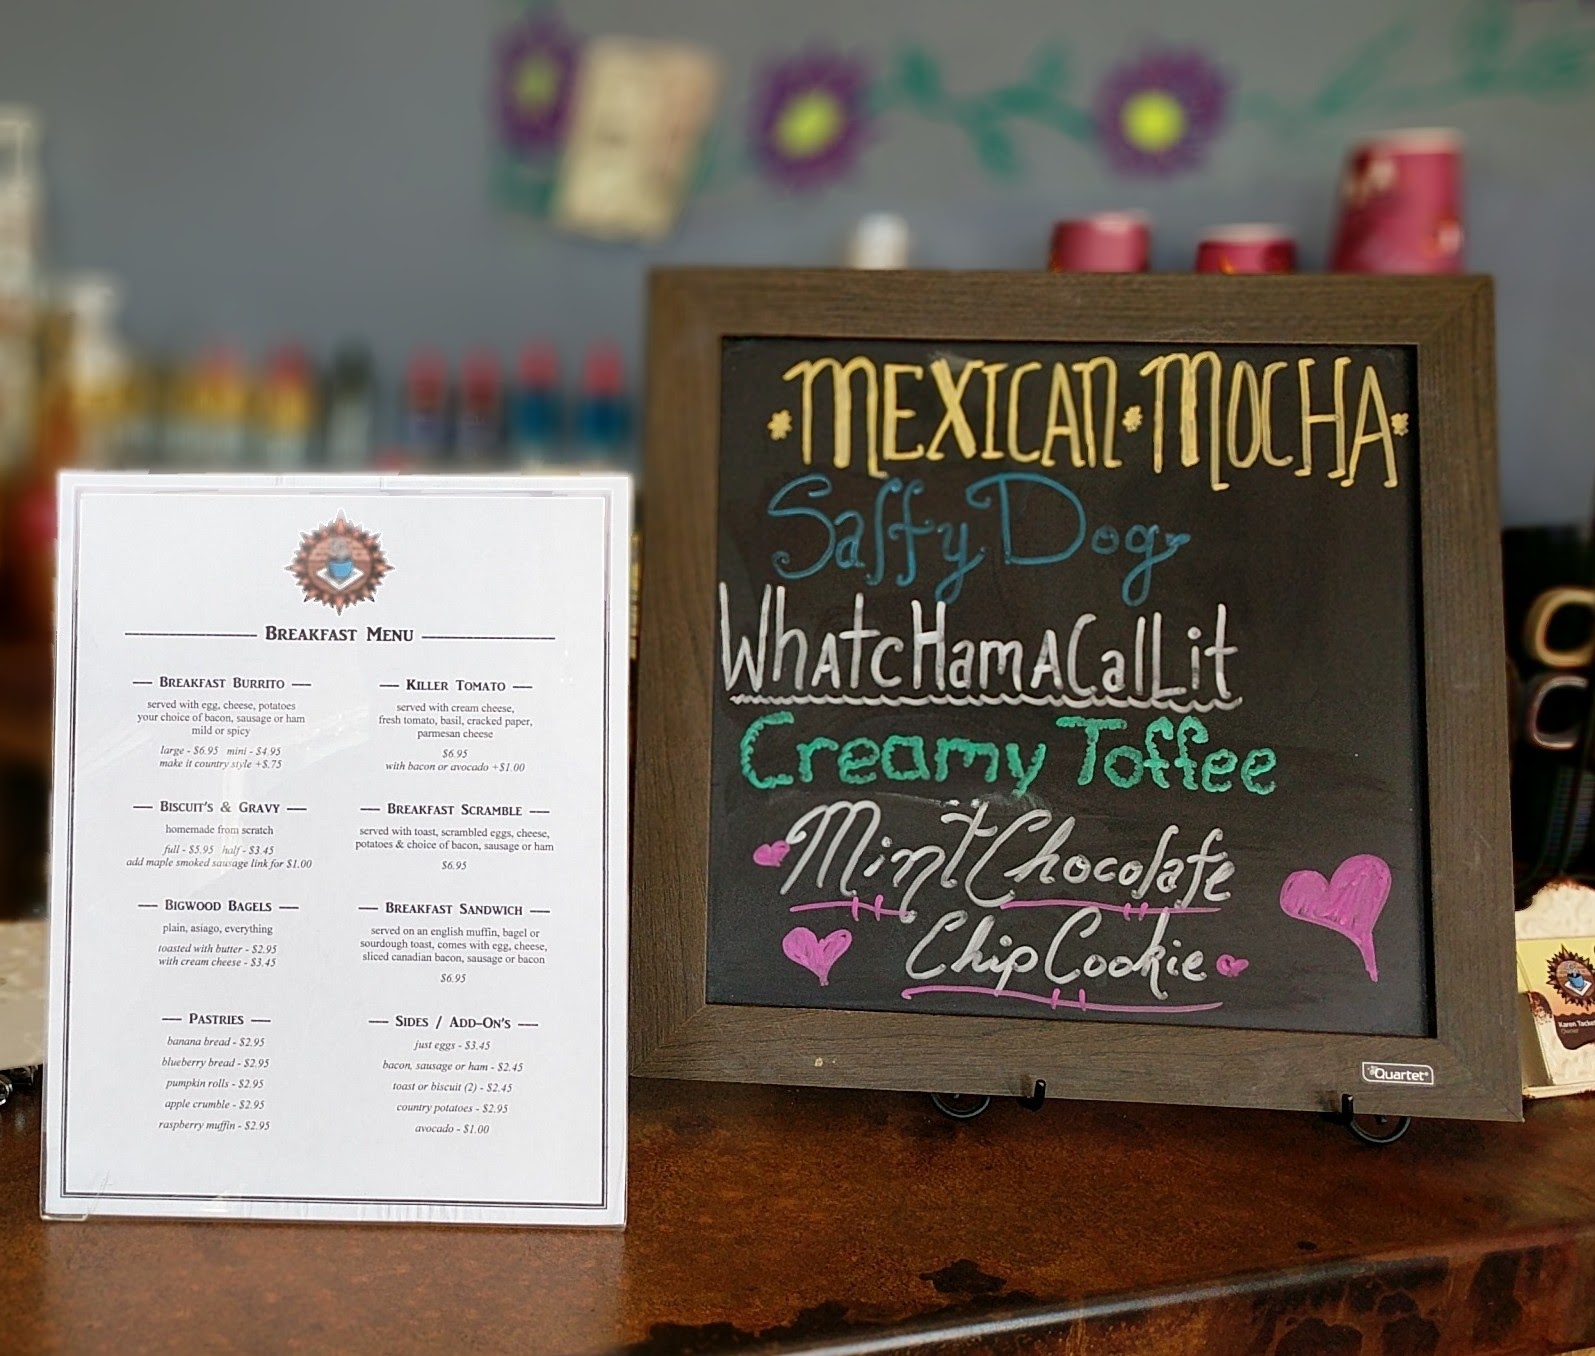 BREAKFAST MENU
BREAKFAST BURRITO
served with egg, cheese, potatoes
your choice of bacon, sausage or ham
mild or spicy
large - $6.95 mini - $4.95
make it country style +$.75
BISCUIT'S & GRAVY
homemade from scratch
full - $5.95 half - $3.45
add maple smoked sausage link for $1.00
BIGWOOD BAGELS
plain, asiago, everything
toasted with butter - $2.95
with cream cheese - $3.45
PASTRIES
banana bread - $2.95
blueberry bread - $2.95
pumpkin rolls - $2.95
apple crumble - $2.95
raspberry muffin - $2.95
KILLER TOMATO
served with cream cheese,
fresh tomato, basil, cracked paper,
parmesan cheese
$6.95
with bacon or avocado +$1.00
BREAKFAST SCRAMBLE
served with toast, scrambled eggs, cheese,
potatoes & choice of bacon, sausage or ham
$6.95
BREAKFAST SANDWICH
served on an english muffin, bagel or
sourdough toast, comes with egg, cheese,
sliced canadian bacon, sausage or bacon
$6.95
SIDES / ADD-ON'S
just eggs - $3.45
bacon, sausage or ham - $2.45
toast or biscuit (2) - $2.45
country potatoes - $2.95
avocado - $1.00
MEXICAN MOCHA
Salfy Dog
WhatcHamACallit
Creamy Toffee
Mint Chocolate
Chip Cookie
Quartet
Karen
Owner